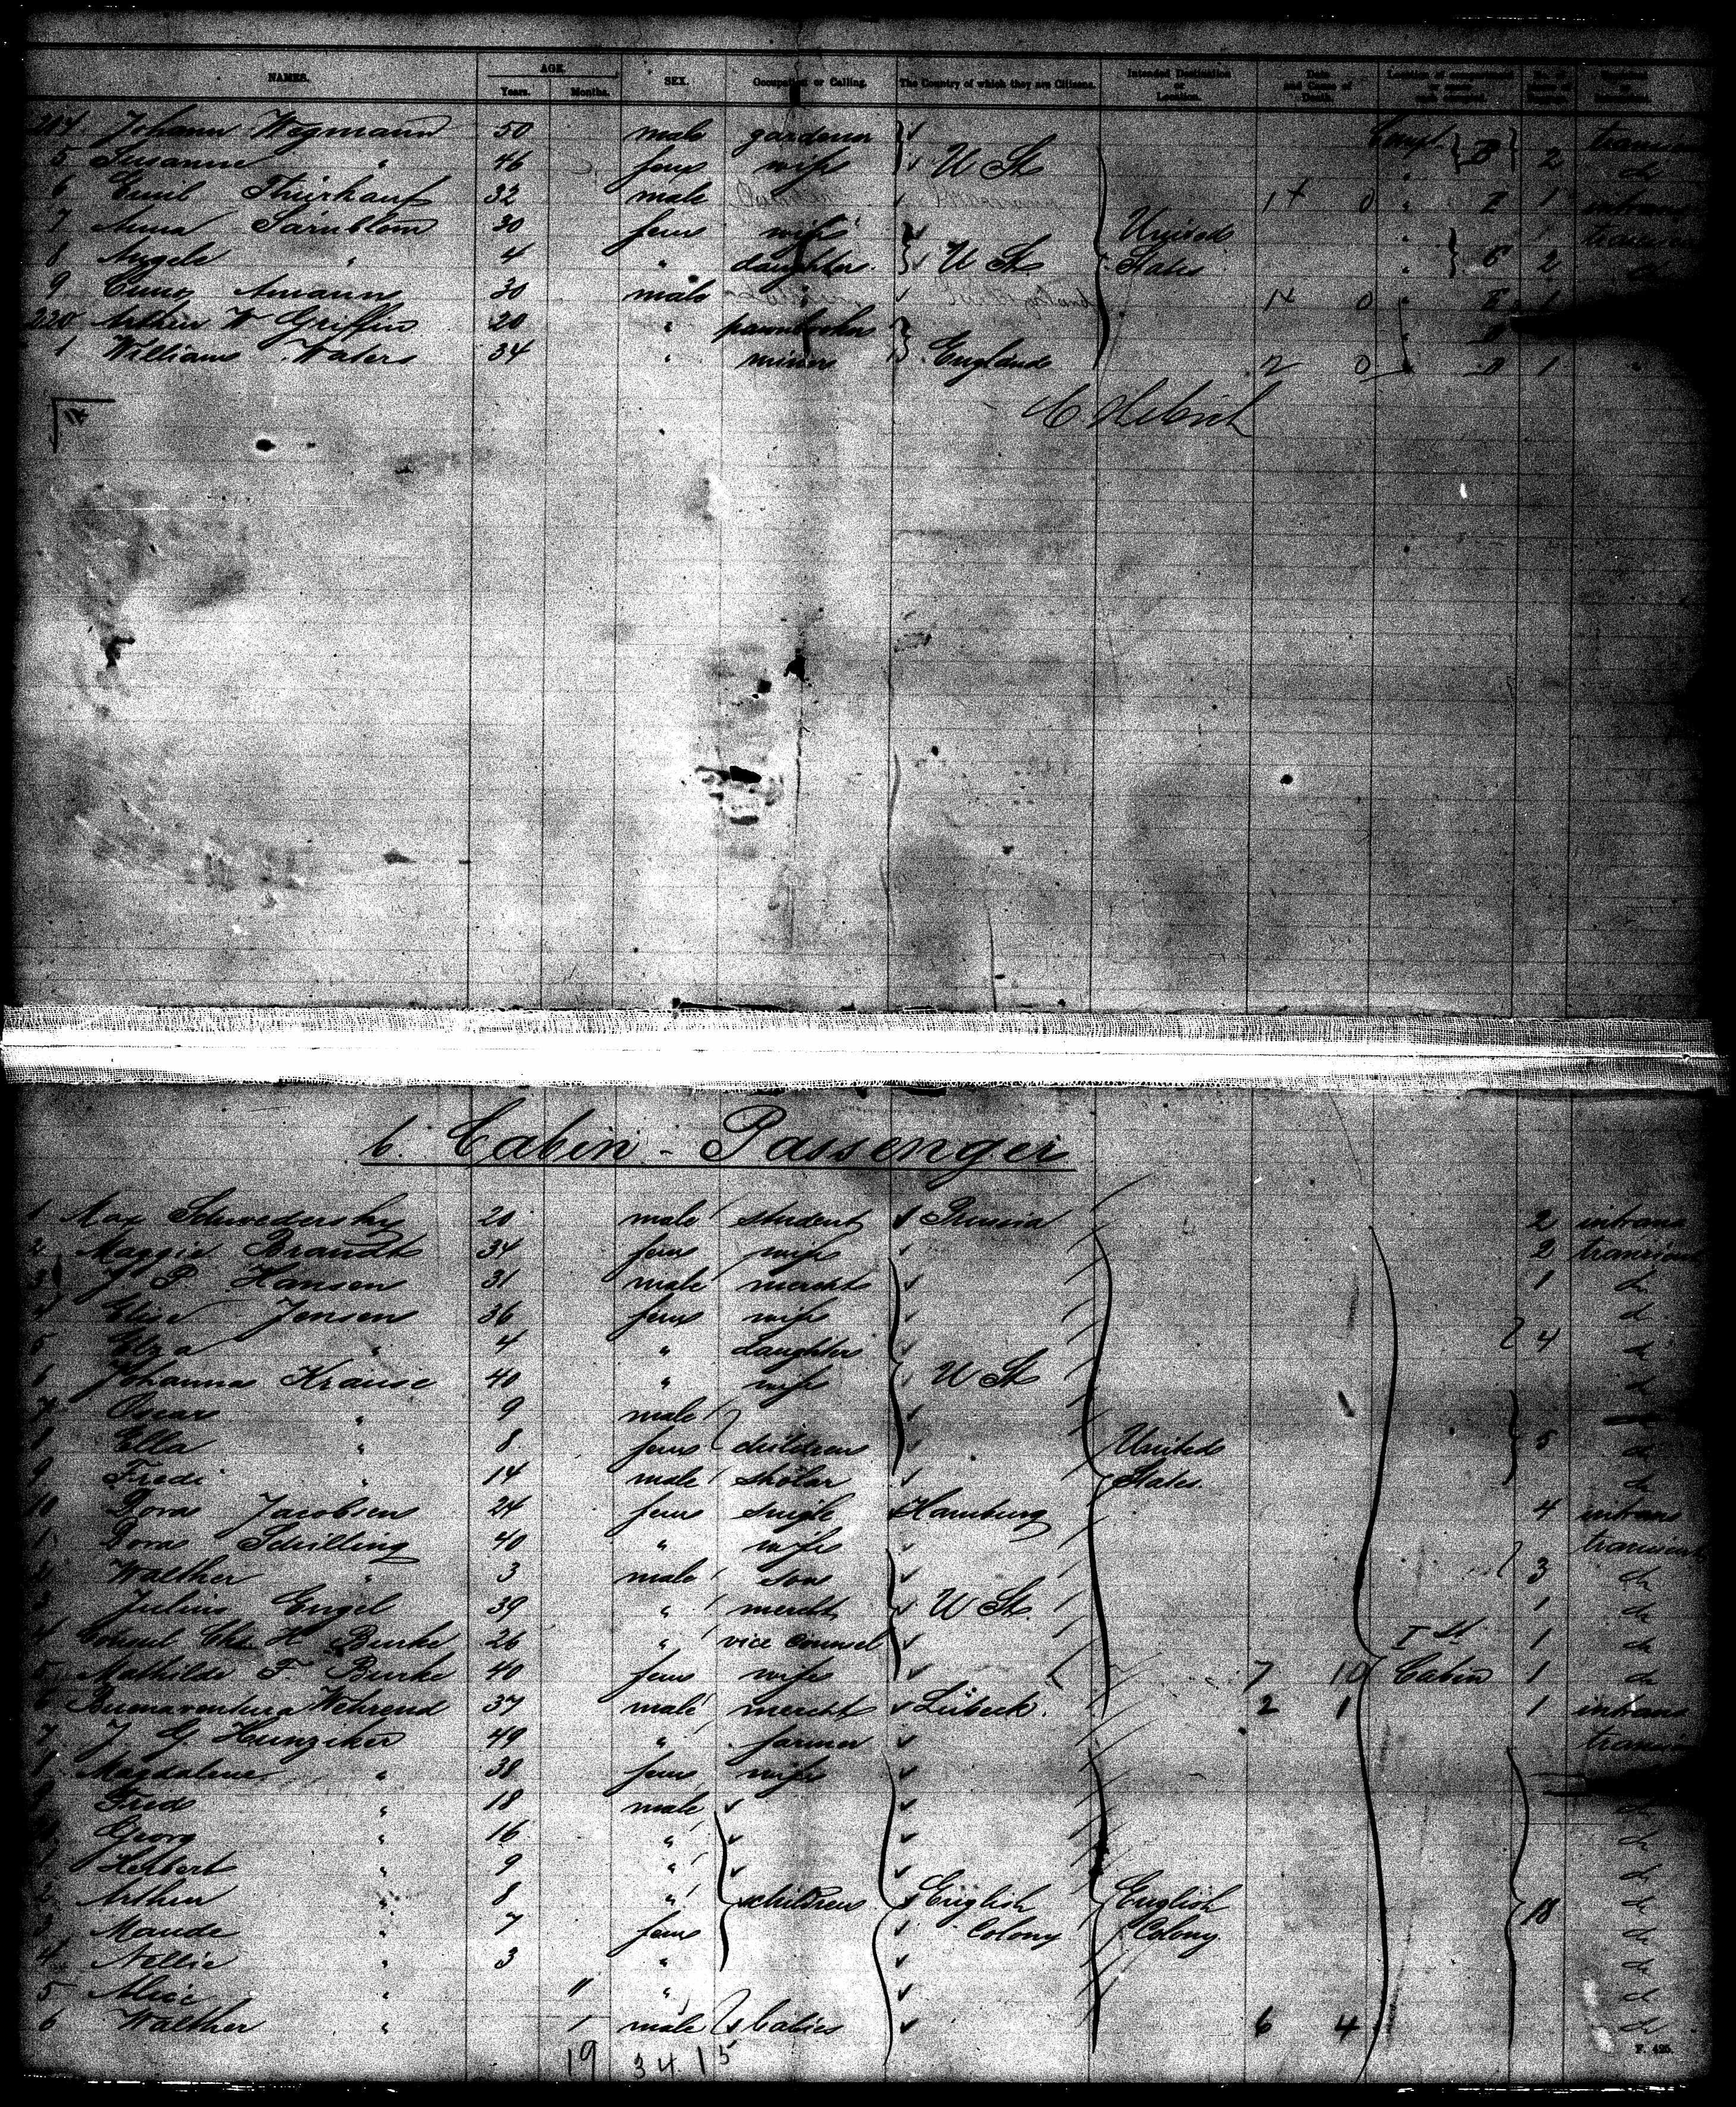 NAMES. AGE. Years. Months. SEX. Occupation or Calling. The Country of which they are Citizens. Intended Destination or Location. Date and Cause of Death.
214 Johann Wegmann 50 male gardener Compt. B transient
5 Susanne " 46 fem wife U St " 2 do
6 Emil Thürkauf 32 male 14 0 " E 1 intrans
7 Anna Särnblom 30 fem wife United " 1 transient
8 Angele " 4 " daughter U St States " C 2 do
9 Cuno Amann 30 male 14 0 " E 1
220 Arthur W Griffin 20 " pawnbroker "
1 William Waters 34 " miner England 2 0 " 1 "
b. Cabin - Passenger
1 Max Schwedersky 20 male student Prussia 2 intrans
2 Maggie Brandt 34 fem wife 2 transient
3 J. P. Hansen 31 male mercht 1 do
4 Elise Jensen 36 fem wife do
5 Elza " 4 " daughter 4 do
6 Johanna Krause 40 " wife U St do
7 Oscar " 9 male
8 Ella " 8 fem children United 5 do
9 Fredi " 14 male skolar States. do
10 Dora Jacobsen 24 fem single Hamburg 4 intrans
1 Dora Schilling 40 " wife transient
2 Walther " 3 male son 3 do
3 Julius Engel 39 " mercht U St. 1 do
4 Consul Chs. H. Burke 26 " vice counsel Ist 1 do
5 Mathilde F. Burke 40 fem wife 7 10 Cabin 1 do
6 Buenaventura Wehrend 37 male mercht Lübeck. 2 1 1 intrans
7 J. G. Hunziker 49 " farmer transient
8 Magdalene " 38 fem wife
9 Fred " 18 male do
Georg " 16 " do
1 Herbert " 9 " do
2 Arthur " 8 " children English English 18 do
3 Maude " 7 fem Colony Colony do
4 Nellie " 3 " do
5 Alice " 11 " do
6 Walther " 1 male babies 6 4 do
19 34 15
F. 425.